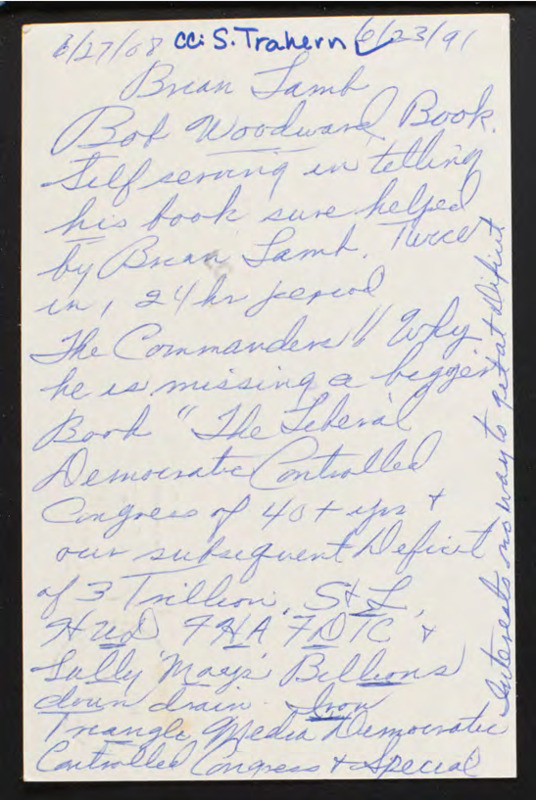 6/27/08 cc: S. Trahern 6/23/91
Brian Lamb
Bob Woodward Book.
Self serving in telling
his book sure helped
by Brian Lamb. Twice
in 1, 24 hr period
The Commanders" Why
he is missing a bigger
Book "The Liberal
Democratic Controlled
Congress of 40 + yrs +
our subsequent Deficit
of 3 Trillion, S+L,
HUD FHA FDIC +
Sally 'Mays' Billions
down drain. Iron
Triangle Media Democratic
Controlled Congress + Special
Interests no way to get at Deficit